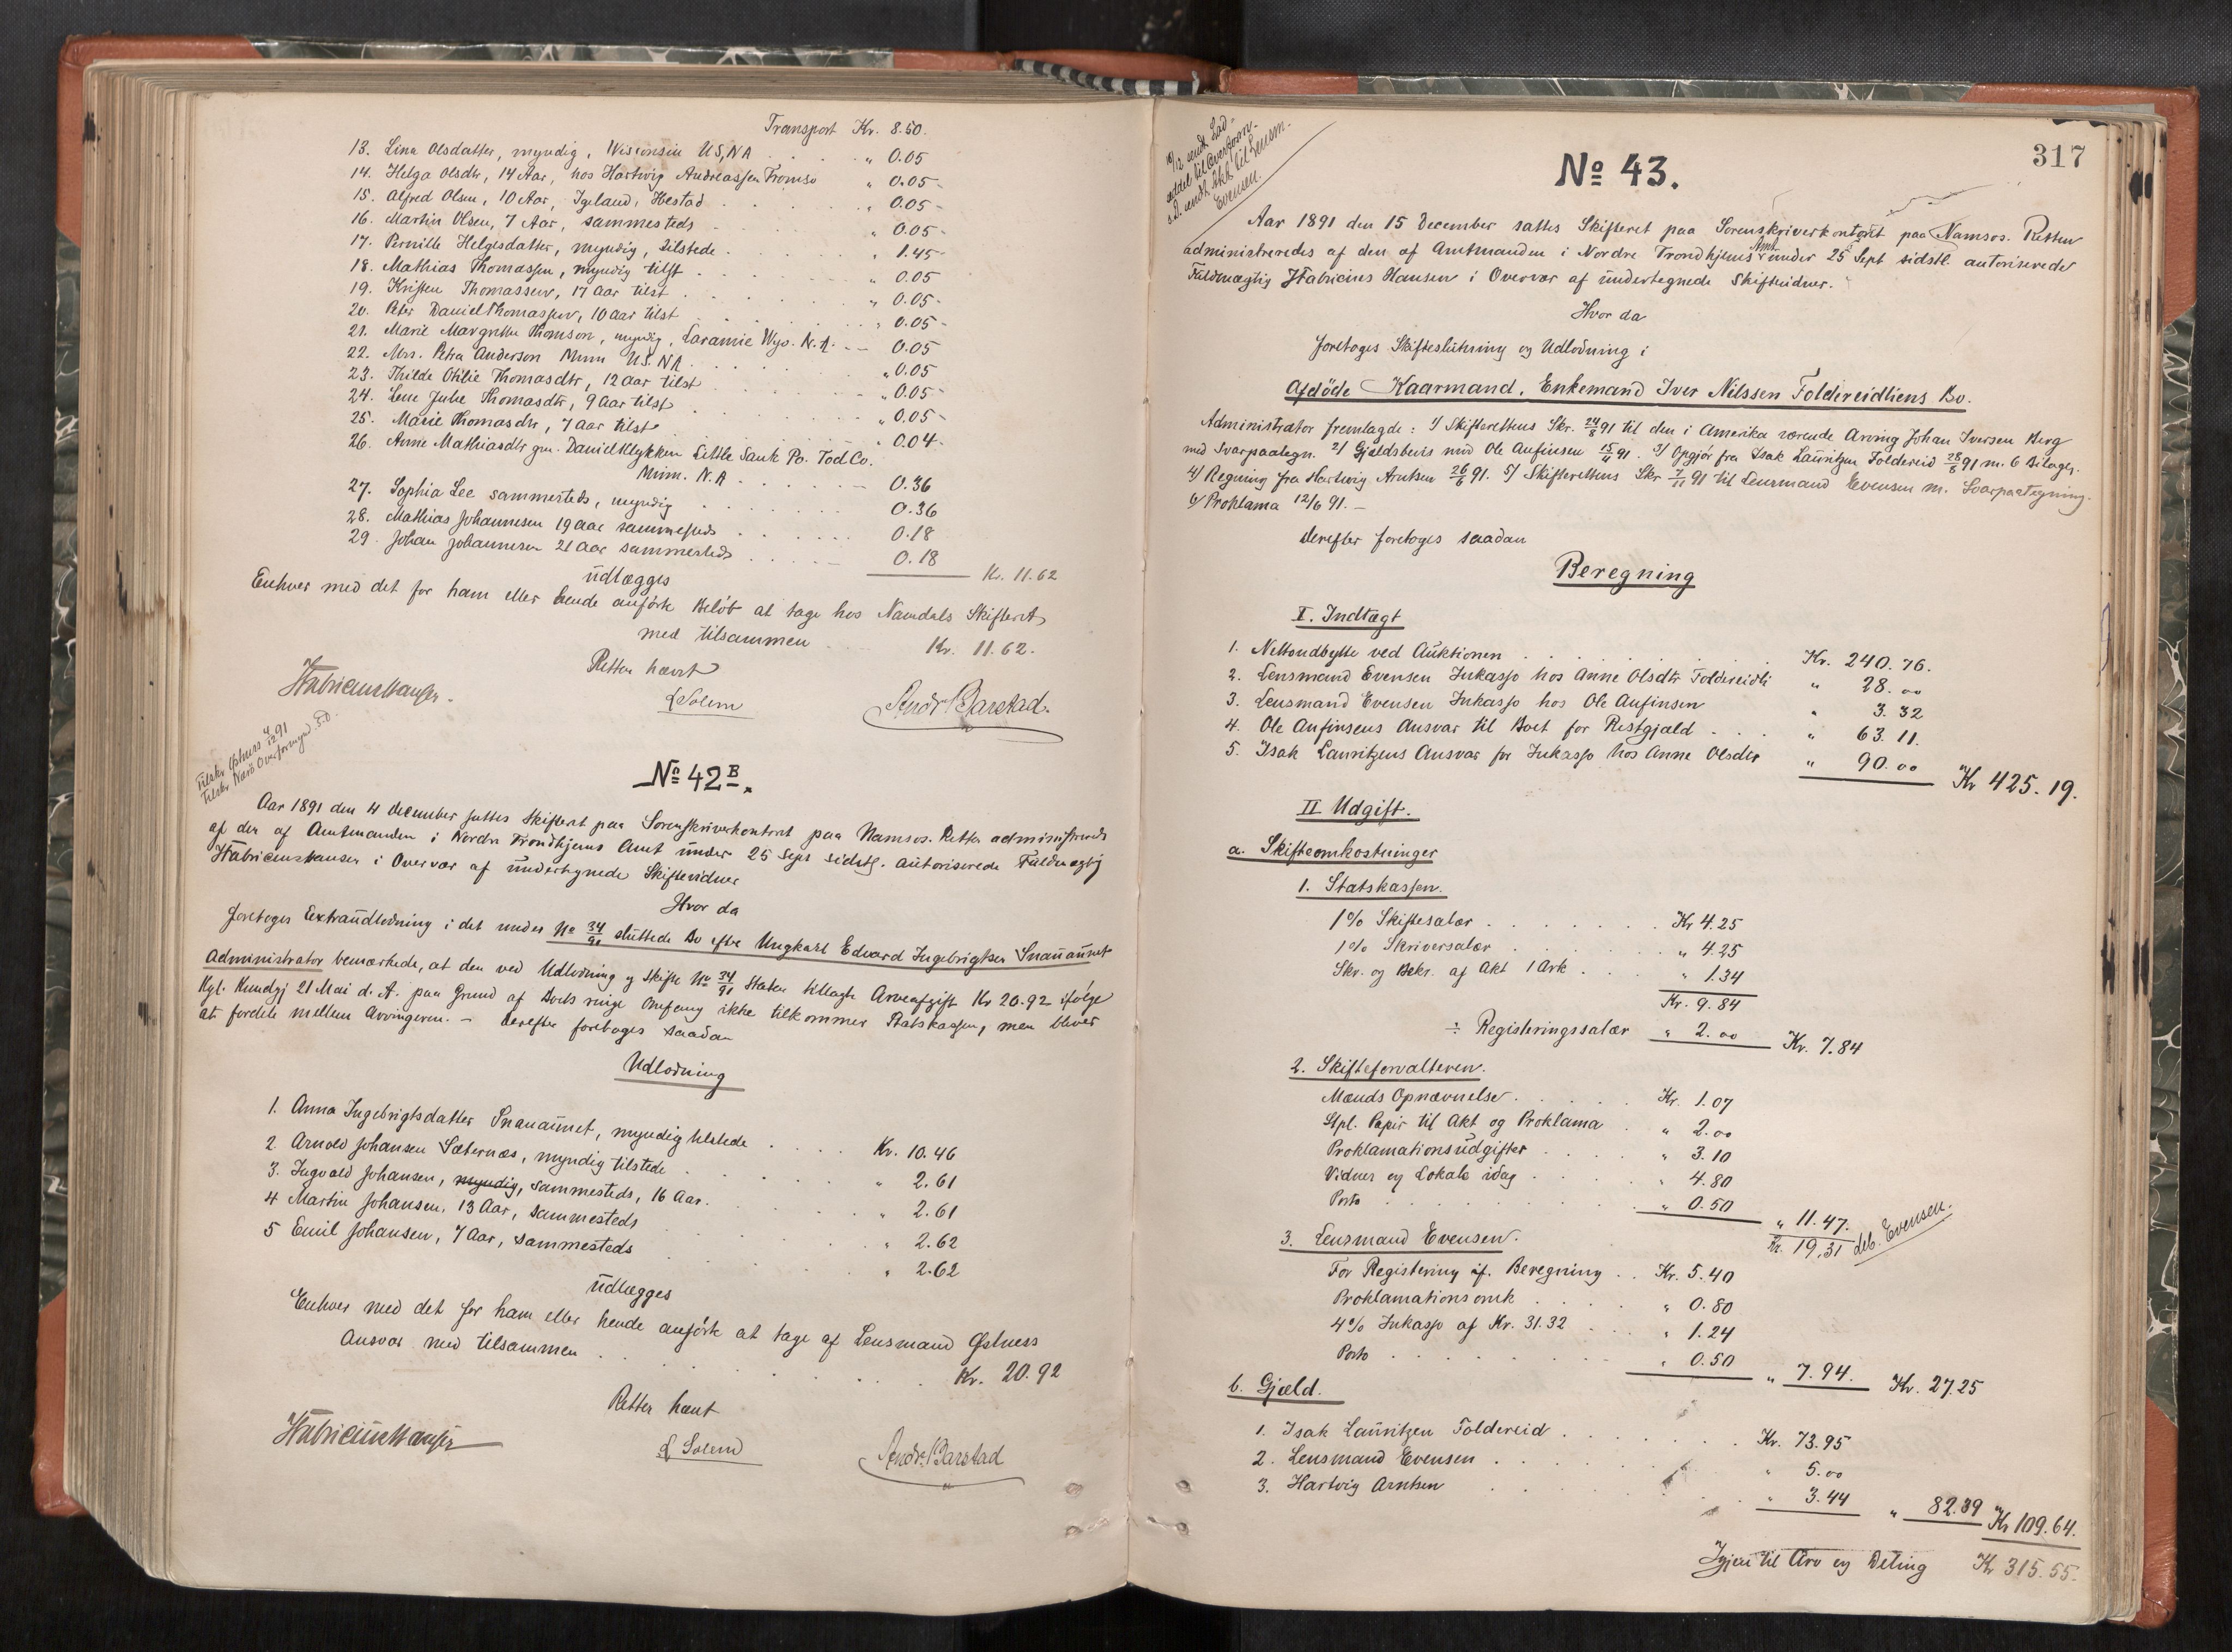 Transport Kr. 8.50.
13. Lina Olsdatter, myndig, Wisconsin US, NA . . . " 0.05
14. Helga Olsdtr, 14 Aar, hos Hartvig Andreassen Tromsö " 0.05
15. Alfred Olsen, 10 Aar, Igeland, Hestad . . . " 0.05
16. Martin Olsen, 7 Aar, sammesteds . . . " 0.05
17. Pernille Helgesdatter, myndig, tilstede . . . " 1.45
18. Mathias Thomassen, myndig tilst . . . " 0.05
19. Kristen Thomassen, 17 Aar tilst . . . " 0.05
20. Peter Daniel Thomassen, 10 aar tilst . . . " 0.05
21. Marie Margrethe Thomson, myndig, Laramie Wyo. N.A. . . . 0.05
22. Mrs. Petra Anderson Minn U.S. NA . . . " 0.05
23. Thilde Otilie Thomasdtr, 12 aar tilst . . . " 0.05
24. Lene Julie Thomasdtr, 9 Aar tilst . . . " 0.05
25. Marie Thomasdtr, 7 aar tilst . . . " 0.04
26. Anne Mathiasdtr gm. Daniel Klykken Little Sauk Po. Tod Co.
Minn. N.A . . . 0.36
27. Sophia Lee sammesteds, myndig . . . 0.36
28. Mathias Johannesen 19 aar sammesteds . . . 0.18
29. Johan Johannesen 21 Aar sammesteds . . . 0.18
Kr. 11.62
udlægges
Enhver med det for ham eller hende anførte Beløb at tage hos Namdals Skifteret
med tilsammen . . . Kr. 11.62.
Retten hævet
HFabriciusHansen.
L Solem
Andr Barstad.
Tilskr. Østness 4/12 91
Tilskr. Nærö Overformynd. s.D.
No 42 B.
Aar 1891 den 4 December sattes Skifteret paa Sorenskriverkontoret paa Namsos. Retten administreredes
af den af Amtmanden i Nordre Trondhjems Amt under 25 Sept sidstl. autoriserede Fuldmægtig
HFabriciusHansen i Overvær af undertegnede Skiftevidner
Hvor da
foretoges Extraudlodning i det under No 34/91 sluttede Bo efter Ungkarl Edvard Ingebrigtsen Snauaunet
Administrator bemærkede, at den ved Udlodning og Skifte No 34/91 Staten tillagte Arveafgift Kr 20.92 ifølge
Kgl. Kundgj 21 Mai d. A. paa Grund af Boets ringe Omfang ikke tilkommer Statskassen, men bliver
at fordele mellem Arvingerne. — Derefter foretoges saadan
Udlodning
1. Anna Ingebrigtsdatter Snauaunet, myndig tilstede . . . Kr. 10.46
2. Arnold Johansen Sæternæs, myndig tilstede . . . " 2.61
3. Ingvald Johansen, myndig, sammesteds, 16 Aar. . . . " 2.61
4 Martin Johansen, 13 Aar, sammesteds . . . " 2.62
5 Emil Johansen, 7 Aar, sammesteds . . . " 2.62
udlægges
Enhver med det for ham eller hende anførte at tage af Lensmand Østness
Ansvar med tilsammen . . . Kr. 20.92
Retten hævet
HFabriciusHansen
L Solem
Andr. Barstad
317
Evensen.
No 43.
Aar 1891 den 15 December sattes Skifteret paa Sorenskriverkontoret paa Namsos. Retten
administreredes af den af Amtmanden i Nordre Trondhjems Amt under 25 Sept sidstl. autoriserede
Fuldmægtig HFabricius Hansen i Overvær af undertegnede Skiftevidner.
Hvor da
foretoges Skifteslutning og Udlodning i
Afdøde Kaarmand, Enkemand Iver Nilssen Foldereidliens Bo.
Administrator fremlagde: 1) Skifterettens Skr. 24/8 91 til den i Amerika værende Arving Johan Iversen Berg
med Svarpaategn. 2) Gjældsbevis med Ole Anfinsen 15/4 91. 3) Opgjør fra Isak Lauritzen Foldereid 28/8 91 m. 6 Bilager.
4) Regning fra Hartvig Arntsen 26/6 91. 5) Skifterettens Skr 7/11 91 til Lensmand Evensen m. Svarpaategning.
6) Proklama 12/6 91. —
derefter foretoges saadan
Beregning
I. Indtægt
1. Nettoudbytte ved Auktionen . . . Kr. 240.76.
2. Lensmand Evensen Inkasso hos Anne Olsdtr Foldereidli " 28.00
3. Lensmand Evensen Inkasso hos Ole Anfinsen " 3.32
4. Ole Anfinsens Ansvar til Boet for Restgjæld . . . " 63.11.
5. Isak Lauritzens Ansvar for Inkasso hos Anne Olsdtr " 90.00 Kr 425.19.
II Udgift.
a. Skifteomkostninger
1. Statskassen.
1% Skiftesalær . . . Kr 4.25
1% Skriversalær . . . " 4.25
Skr. og Bekr. af Akt 1 Ark . . . " 1.34
Kr. 9.84
÷ Registeringssalær " 2.00 Kr. 7.84
2. Skifteforvalteren.
Mænds Opnævnelse . . . Kr. 1.07
Stpl. Papir til Akt og Proklama . " 2.00
Proklamationsudgifter . . . " 3.10
Vidner og Lokale idag . . . " 4.80
Porto . . . " 0.50 " 11.47.
Kr. 19.31 deb. Evensen.
3. Lensmand Evensen.
For Registering if. Beregning . . Kr. 5.40
Proklamationsomk . . . " 0.80
4% Inkasso af Kr. 31.32 . . . " 1.24
Porto . . . " 0.50 " 7.94. Kr. 27.25
b. Gjæld.
1. Isak Lauritzen Foldereid . . . Kr. 73.95
2. Lensmand Evensen . . . " 5.00
3. Hartvig Arntsen . . . " 3.44 " 82.39 Kr 109.64.
Igjen til Arv og Deling Kr 315.55.